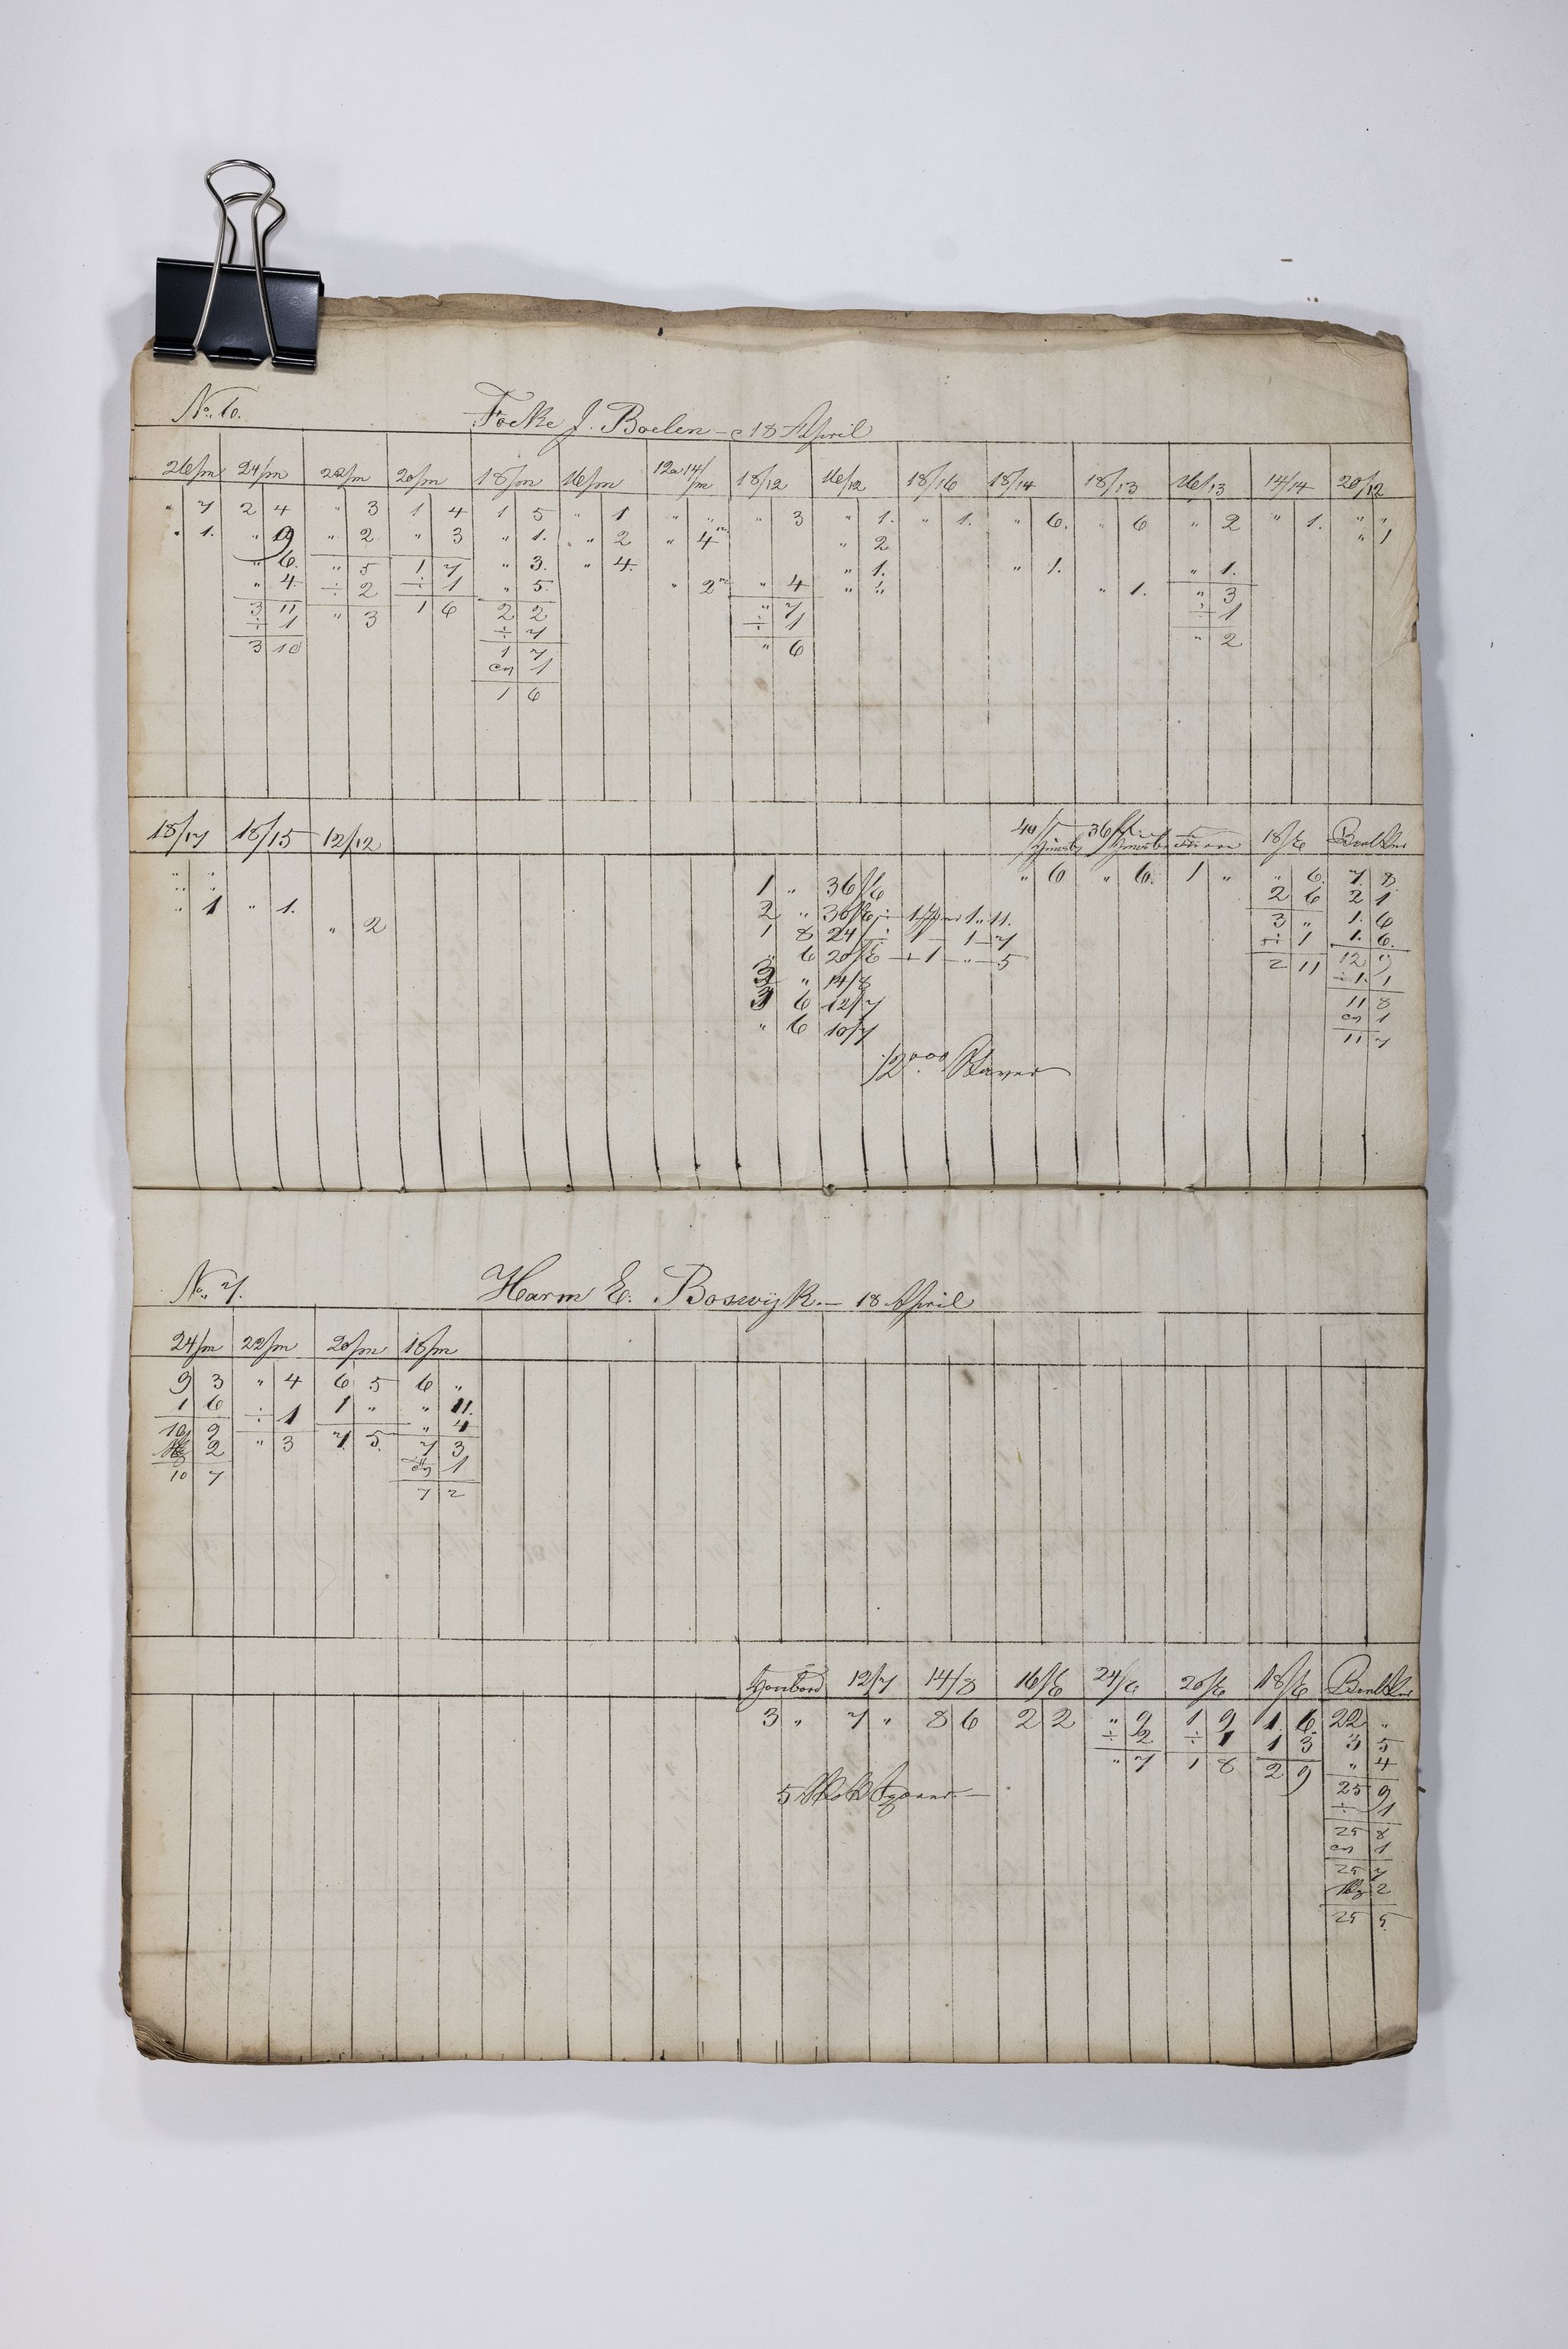 No. 6. Focke J. Boelen - 18 April
26/m 24/m 22/m 20/m 18/m 16/m 12 a 14/m 18/12 16/12 18/16 18/14 18/13 16/13 14/14 20/12
" 7 2 4 " 3 1 4 1 5 " 1 " " " 3 " 1. " 1. " 6. " 6 " 2 " 1. " "
" 1. " 9 " 2 " 3 " 1. " 2 " 4 " 2 " 1
" 6. " 5 1 7 " 3. " 4. " 1. " 1. " 1.
" 4. ÷ 2 ÷ 1 " 5. " 2 " 4 " " " 1. " 3
3 11 " 3 1 6 2 2 " 7 ÷ 1
÷ 1 ÷ 7 ÷ 1 " 2
3 10 1 7 " 6
en 1
1 6
18/17 18/15 12/12 18/E
" " 1 " 36/E " 6 " 6. 1 " " 6. 7. 8
" 1 " 1. 2 " 36/E ÷ 1 1 " 11. 2 6 2 1
" 2 1 8 24/ ÷ 1 - 1 - 7 3 " 1. 6
" 6 20/E ÷ 1 - " - 5 ÷ 1 1. 6.
3 " 14/8 2 11 12 9
3 6 12/7 ÷ 1. 1
" 6 10/7 11 8
en 1
12000 11 7
No. 7. Harm E. Boswijk. - 18 April
24/m 22/m 20/m 18/m
9 3 " 4 6 5 6 "
1 6 ÷ 1 1 " " 11.
10 9 " 3 7. 5. " 4
2 7 3
10 7 en 1
7 2
12/7 14/8 16/E 24/E 20/E 18/E
3 " 7 " 8 6 2 2 " 9 1 9 1. 6. 22 "
÷ 2 ÷ 1 1 3 3 5
" 7 1 8 2 9 " 4
25 9
÷ 1
25 8
en 1
25 7
2
25 5.